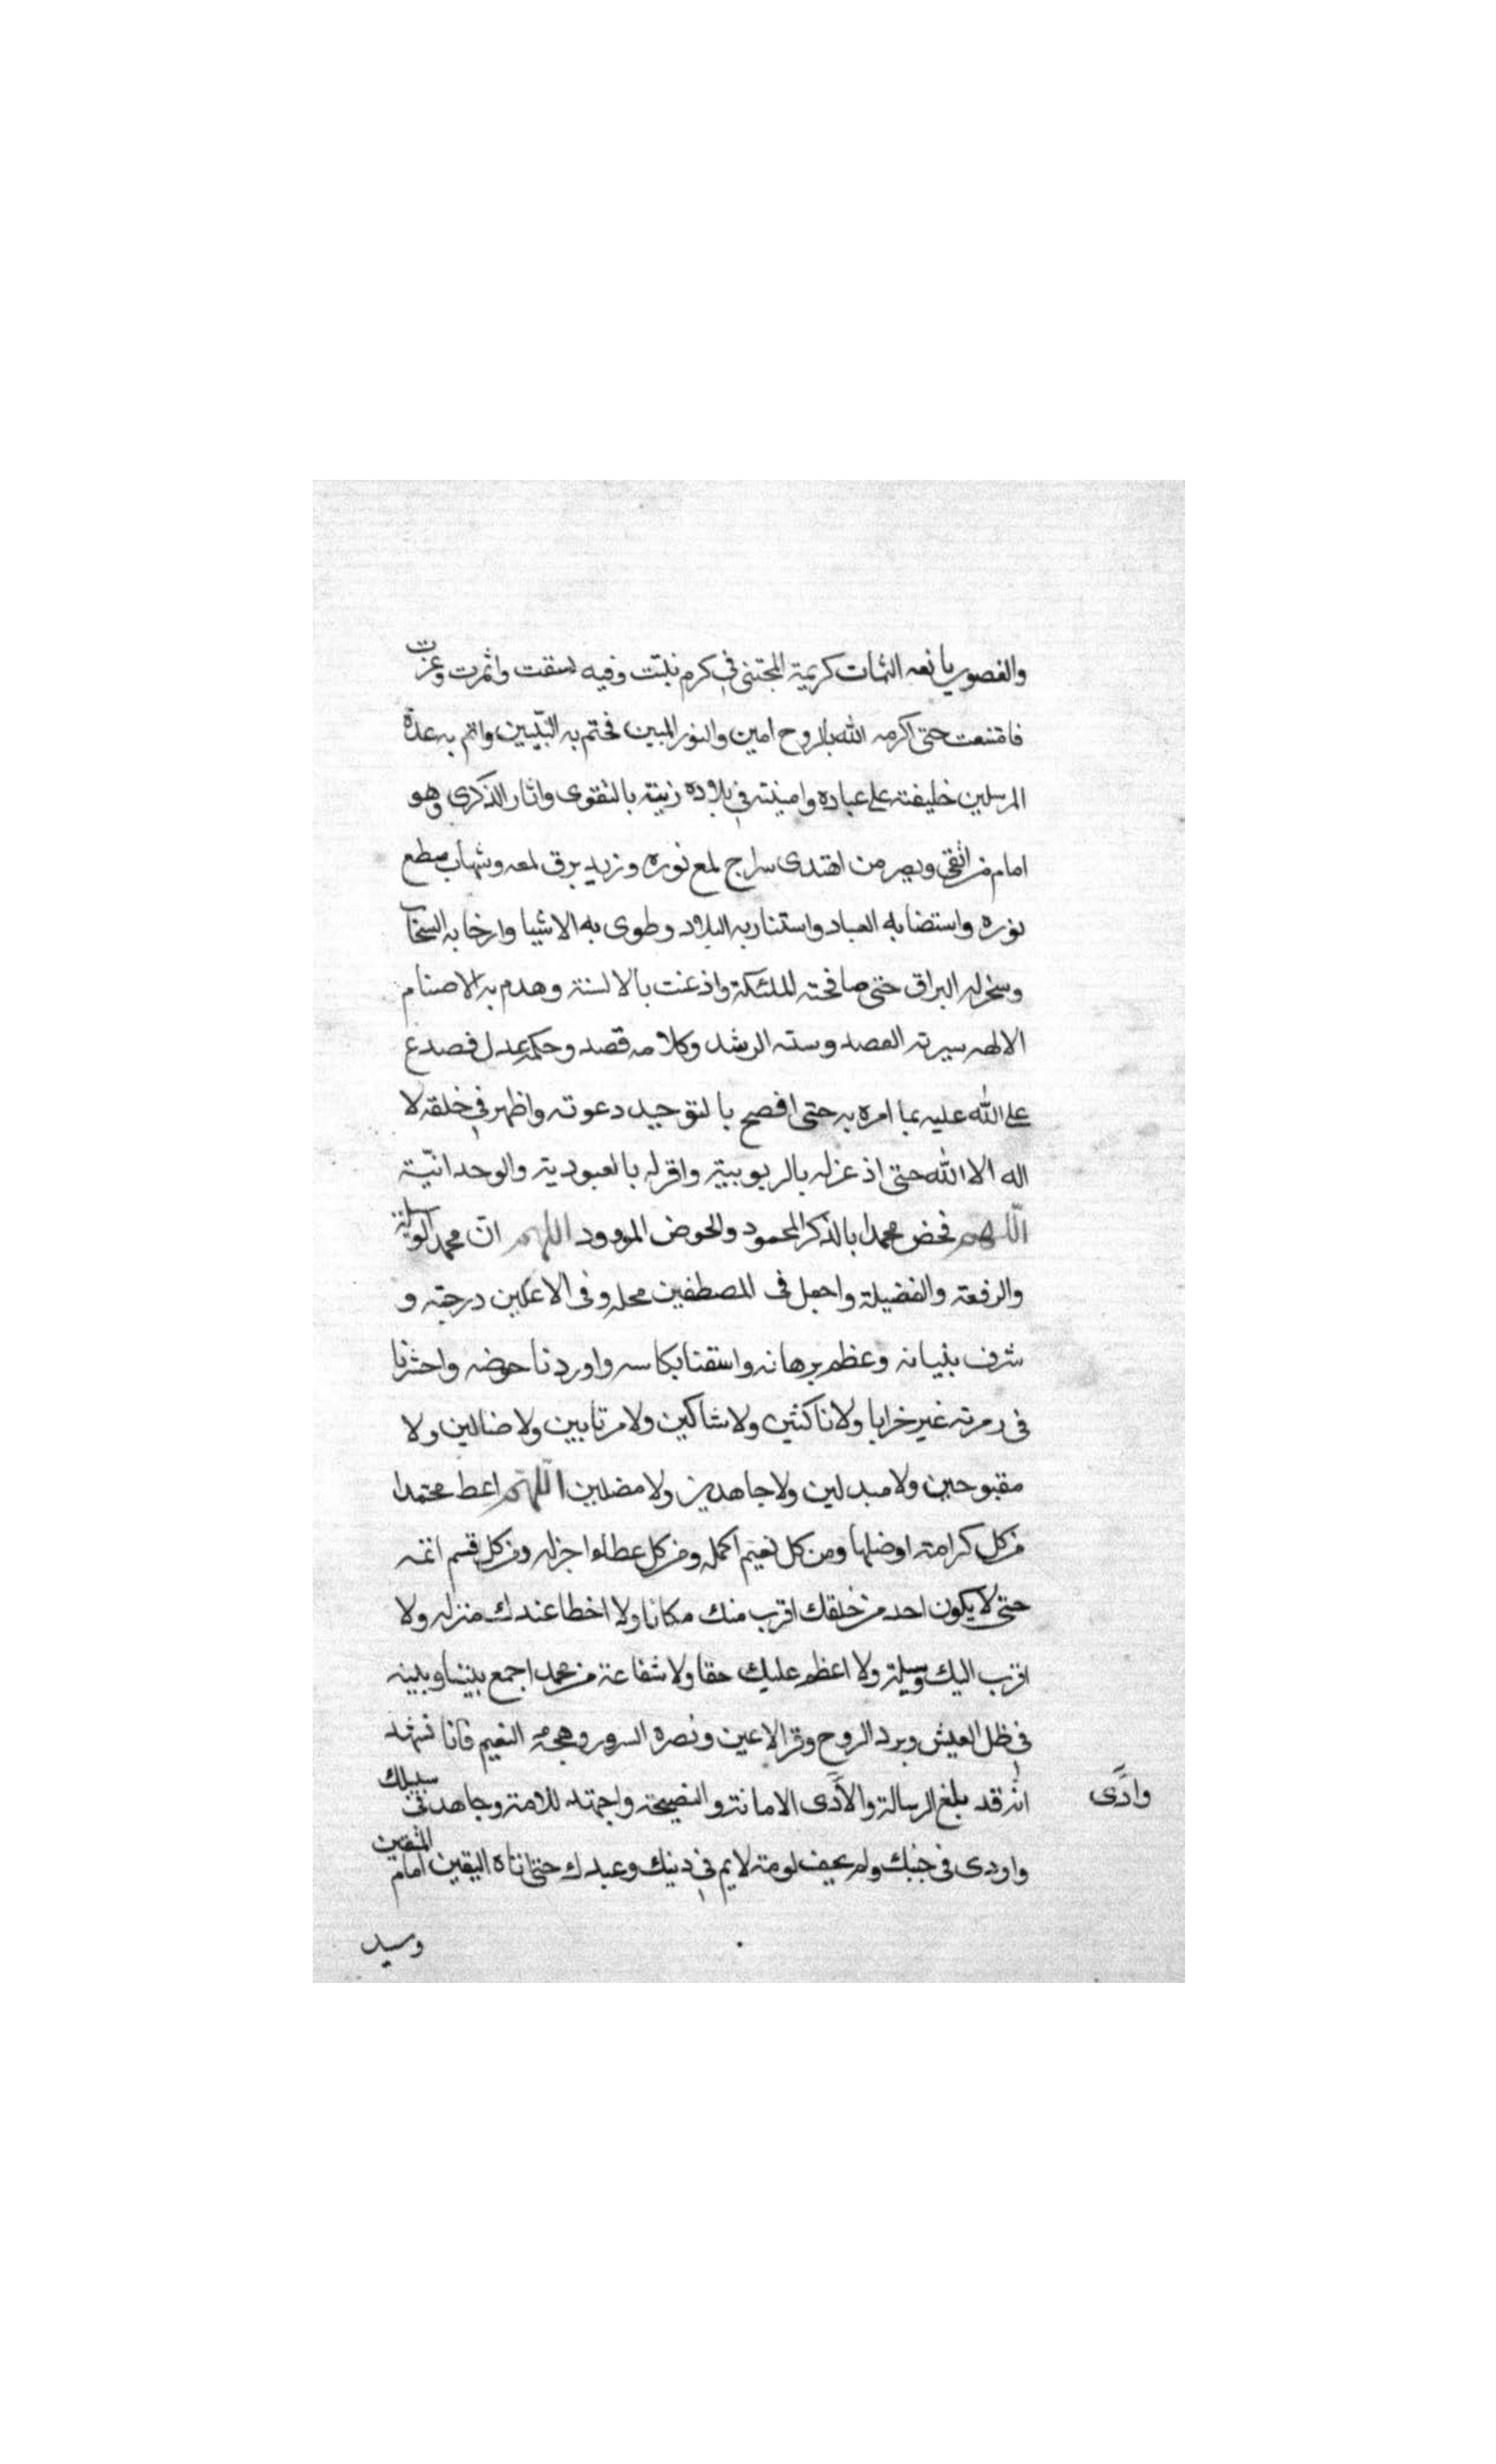 والغصون يانعه الثمات كريمة المجتنى في كرم نبتت وفيه بسقت واثمرت وعزت
فامتنعت حتى اكرمه الله بالروح امين والنور المبين فختم به النبّيين واتم به عدة
المرسلين خليفته على عباده وامينه في بلاده زينه بالتقوى واثار الذكرى وهو
امام من اتقى وبصر من اهتدى سراج لمع نوره وزند برق لمعه وشهاب سطع
نوره واستضا به العباد واستنار به البلاد وطوى به الاشيا وارخا به السحاب
وسخر له البراق حتى صافحته الملئكة واذعنت بالالسنة وهدم به الاصنام
الالهه سيرته القصد وسنته الرشد وكلامه قصد وحكمه عدل فصدع
على الله عليه بما امره به حتى افصح بالتوحيد دعوته واظهر في خلقه لا
اله الا الله حتى اذعن له بالربوبية واقر له بالعبودية والوحدانيّة
اللّهم فخض محمدا بالذكر المحمود والحوض المورود اللهم ات محمد الوسيلة
والرفعة والفضيلة واجعل فى المصطفين محله وفى الاعلين درجته و
شرف بنيانه وعظم برهانه واسقنا بكاسه واوردنا حوضه واحشرنا
فى زمرته غير خزايا ولا ناكثين ولا شاكين ولا مرتابين ولا ضالين ولا
مقبوحين ولا مبدلين ولا جاهدين ولا مضلين اللّهم اعط محمدا
من كل كرامة افضلها ومن كل نعيم اكمله ومن كل عطاء اجزله ومن كل قسم اتمه
حتى لا يكون احد من خلقك اقرب منك مكانا ولا اخطا عندك منزله ولا
اقرب اليك وسيلة ولا اعظم عليك حقا ولا شفاعة من محمد اجمع بيننا وبينه
في ظل العيش وبرد الروح وقر الاعين ونصره السرور وبهجة النعيم فانا نشهد
انه قد بلغ الرسالة والأدّى الامانة والنصيحة واجتهد للامة وجاهد في سبيلك
وادّى
واوذى فى جنبك ولم يخف لومة لايم في دينك وعبدك حتى اتاه اليقين امام المتقين
وسيد